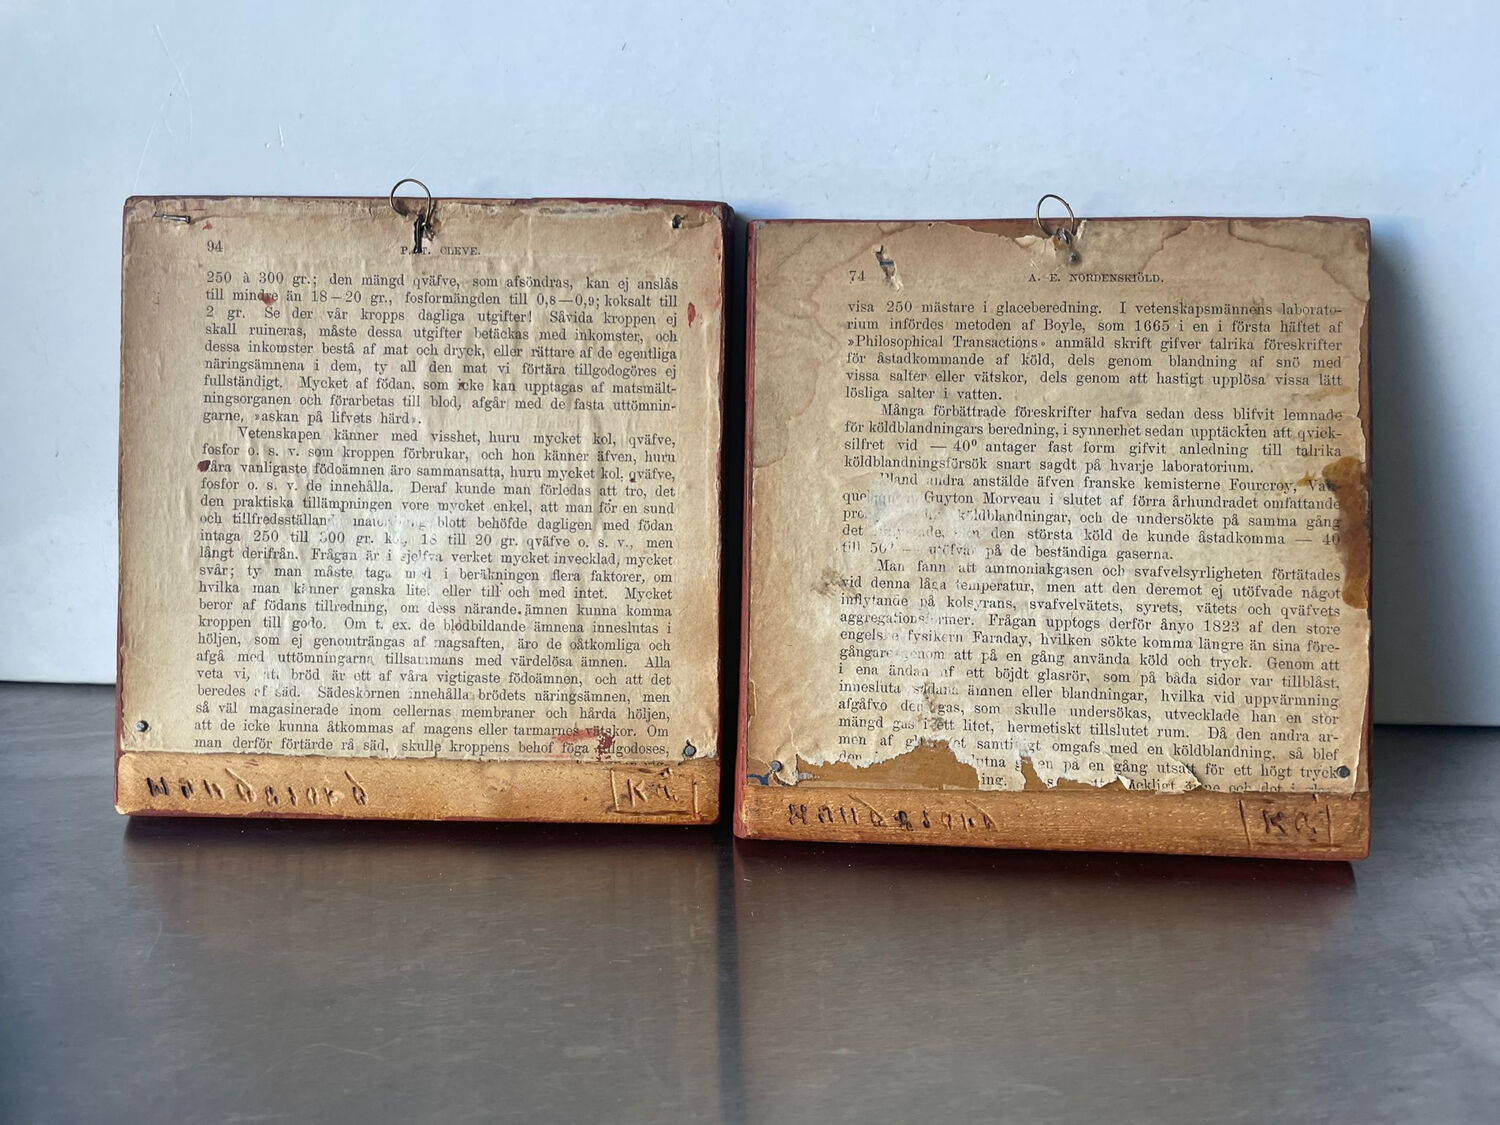 94
P. T. CLEVE.
250 à 300 gr.; den mängd qväfve, som afsöndras, kan ej anslås
till mindre än 18–20 gr., fosformängden till 0,8—0,9; koksalt till
2 gr. Se der vår kropps dagliga utgifter! Såvida kroppen ej
skall ruineras, måste dessa utgifter betäckas med inkomster, och
dessa inkomster bestå af mat och dryck, eller rättare af de egentliga
näringsämnena i dem, ty all den mat vi förtära tillgodogöres ej
fullständigt. Mycket af födan, som icke kan upptagas af matsmält-
ningsorganen och förarbetas till blod, afgår med de fasta uttömnin-
garne, »askan på lifvets härd».
Vetenskapen känner med visshet, huru mycket kol, qväfve,
fosfor o. s. v. som kroppen förbrukar, och hon känner äfven, huru
våra vanligaste födoämnen äro sammansatta, huru mycket kol, qväfve,
fosfor o. s. v. de innehålla. Deraf kunde man förledas att tro, det
den praktiska tillämpningen vore mycket enkel, att man för en sund
och blott behöfde dagligen med födan
intaga 250 till 300 gr. 18 till 20 gr. qväfve o. s. v., men
långt derifrån. Frågan är i sjelfva verket mycket invecklad, mycket
svår; ty man måste taga med i beräkningen flera faktorer, om
hvilka man känner ganska litet eller till och med intet. Mycket
beror af födans tillredning, om dess närande ämnen kunna komma
kroppen till godo. Om t. ex. de blodbildande ämnena inneslutas i
höljen, som ej genomträngas af magsaften, äro de oåtkomliga och
afgå med uttömningarna tillsammans med värdelösa ämnen. Alla
veta vi, att bröd är ett af våra vigtigaste födoämnen, och att det
beredes af säd. Sädeskornen innehålla brödets näringsämnen, men
så väl magasinerade inom cellernas membraner och hårda höljen,
att de icke kunna åtkommas af magens eller tarmarnes vätskor. Om
man derför förtärde rå säd, skulle kroppens behof föga tillgodoses,
Handgjord
Kå
74
A. E. NORDENSKIÖLD.
visa 250 mästare i glaceberedning. I vetenskapsmännens laborato-
rium infördes metoden af Boyle, som 1665 i en i första häftet af
»Philosophical Transactions» anmäld skrift gifver talrika föreskrifter
för åstadkommande af köld, dels genom blandning af snö med
vissa salter eller vätskor, dels genom att hastigt upplösa vissa lätt
lösliga salter i vatten.
Många förbättrade föreskrifter hafva sedan dess blifvit lemnade
för köldblandningars beredning, i synnerhet sedan upptäckten att qvick-
silfret vid — 40° antager fast form gifvit anledning till talrika
köldblandningsförsök snart sagdt på hvarje laboratorium.
Bland andra anstälde äfven franske kemisterne Fourcroy, Vau-
Guyton Morveau i slutet af förra århundradet omfattande
köldblandningar, och de undersökte på samma gång
det den största köld de kunde åstadkomma — 40
till 50° — utöfvar på de beständiga gaserna.
Man fann att ammoniakgasen och svafvelsyrligheten förtätades
vid denna låga temperatur, men att den deremot ej utöfvade något
inflytande på kolsyrans, svafvelvätets, syrets, vätets och qväfvets
aggregationsformer. Frågan upptogs derför ånyo 1823 af den store
engelske fysikern Faraday, hvilken sökte komma längre än sina före-
gångare genom att på en gång använda köld och tryck. Genom att
i ena ändan af ett böjdt glasrör, som på båda sidor var tillblåst,
innesluta sådana ämnen eller blandningar, hvilka vid uppvärmning
afgåfvo den gas, som skulle undersökas, utvecklade han en stor
mängd gas i ett litet, hermetiskt tillslutet rum. Då den andra ar-
men af glasröret samtidigt omgafs med en köldblandning, så blef
den på en gång utsatt för ett högt tryck
ning.
Handgjord
Kå